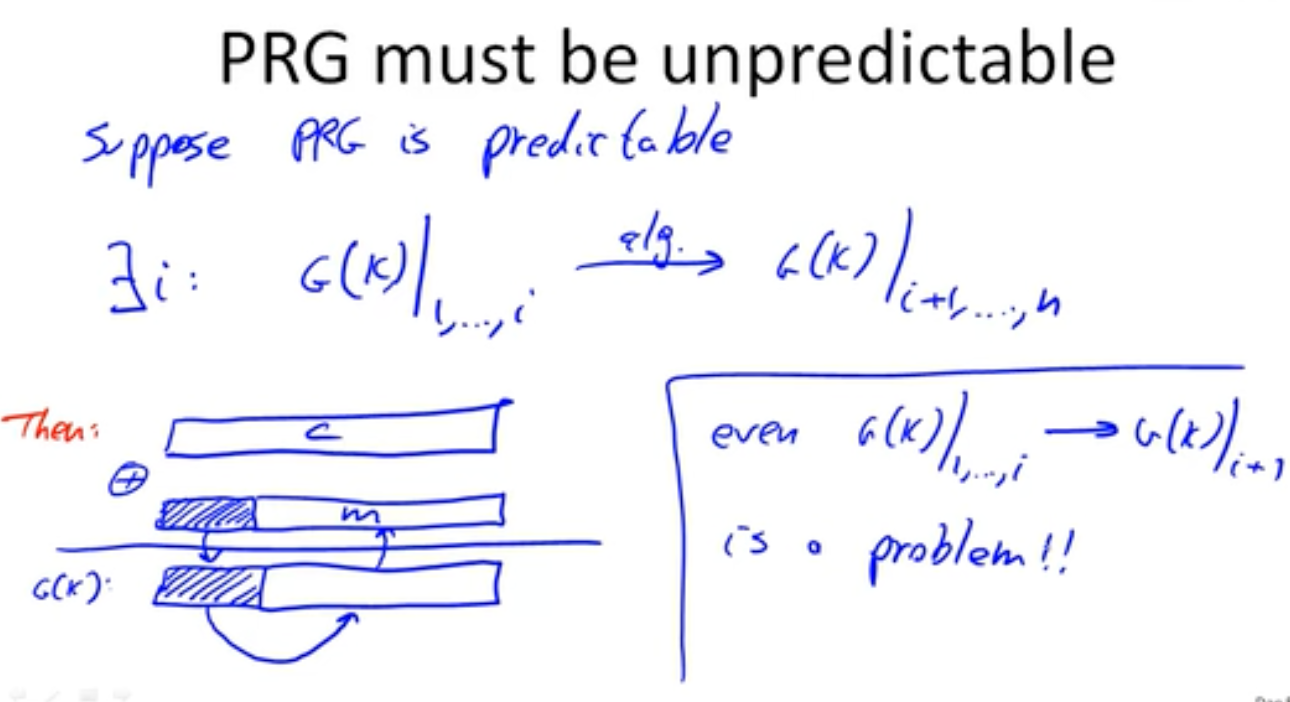 PRG must be unpredictable
Suppose PRG is predictable
∃i: G(K)|1,...,i alg. → G(K)|i+1,...,n
Then:
c
⊕
m
G(K):
even G(K)|1,...,i → G(K)|i+1
is a problem!!